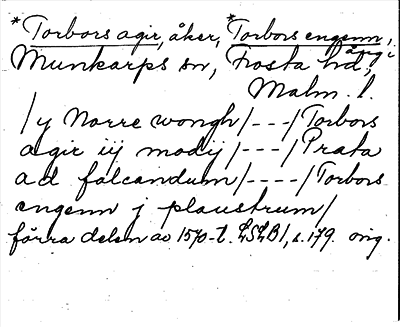 *Torbors agir, åker, *Torbors engenn,
äng i
Munkarps sn, Frosta hd,
Malm. l.
/y Norre wongh/---/Torbors
agir iij modij/---/Prata
ad falcandum/----/Torbors
engenn j plaustrum/
förra delen av 1570-t. LSLB1, s. 179. orig.